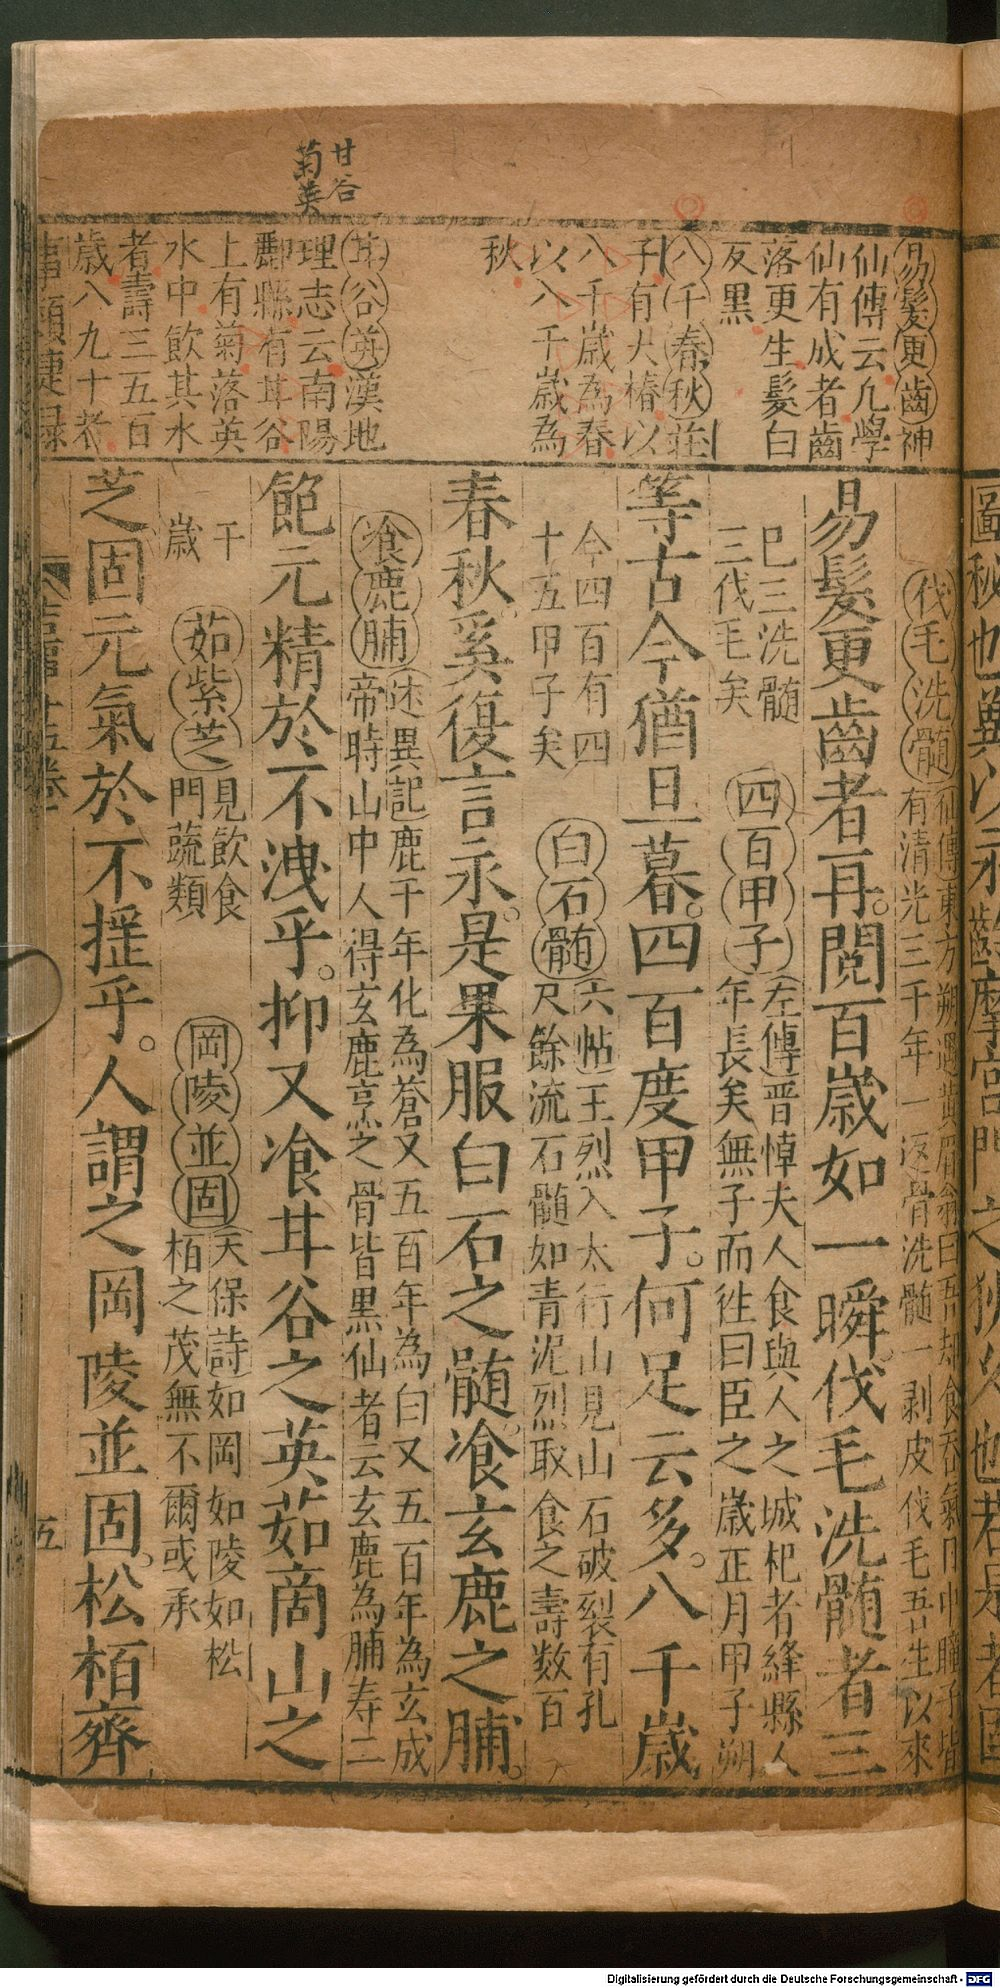 甘谷
菊英
易髮更齒神
仙傳云凢學
仙有成者齒
落更生髮白
反黑
八千春秋莊
子有大椿以
八千歳為春
以八千歳為
秋
甘谷英漢地
理志云南陽
酈縣有甘谷
上有菊落英
水中飲其水
者壽三五百
歳八九十者
伐毛洗髄仙傳東方朔遇黄眉翁曰吾却食吞氣
有清光三千年一返骨洗髄一剥皮伐毛吾生以來
易髮更齒者再。閲百歳如一瞬。伐毛洗髄者三
巳三洗髄
三伐毛矣
四百甲子左傳晋悼夫人食與人之城杞者絳縣人
年長矣無子而徃曰臣之歳正月甲子朔
等古今猶旦暮。四百度甲子。何足云多。八千歳
今四百有四
十五甲子矣
白石髄六帖王烈入太行山見山石破裂有孔
尺餘流石髄如青泥烈取食之壽数百
春秋奚復言永。是果服白石之髄。飡玄鹿之脯。
飡鹿脯述異記鹿千年化為蒼又五百年為白又五百年為玄成
帝時山中人得玄鹿烹之骨皆黒仙者云玄鹿為脯寿二
飽元精於不洩乎。抑又飡甘谷之英茹商山之
千
歳
茹紫芝見飲食
門蔬類
岡陵並固天保詩如岡如陵如松
栢之茂無不爾或承
芝固元氣於不揺乎。人謂之岡陵並固。松栢齊
五
Digitalisierung gefördert durch die Deutsche Forschungsgemeinschaft - DFG